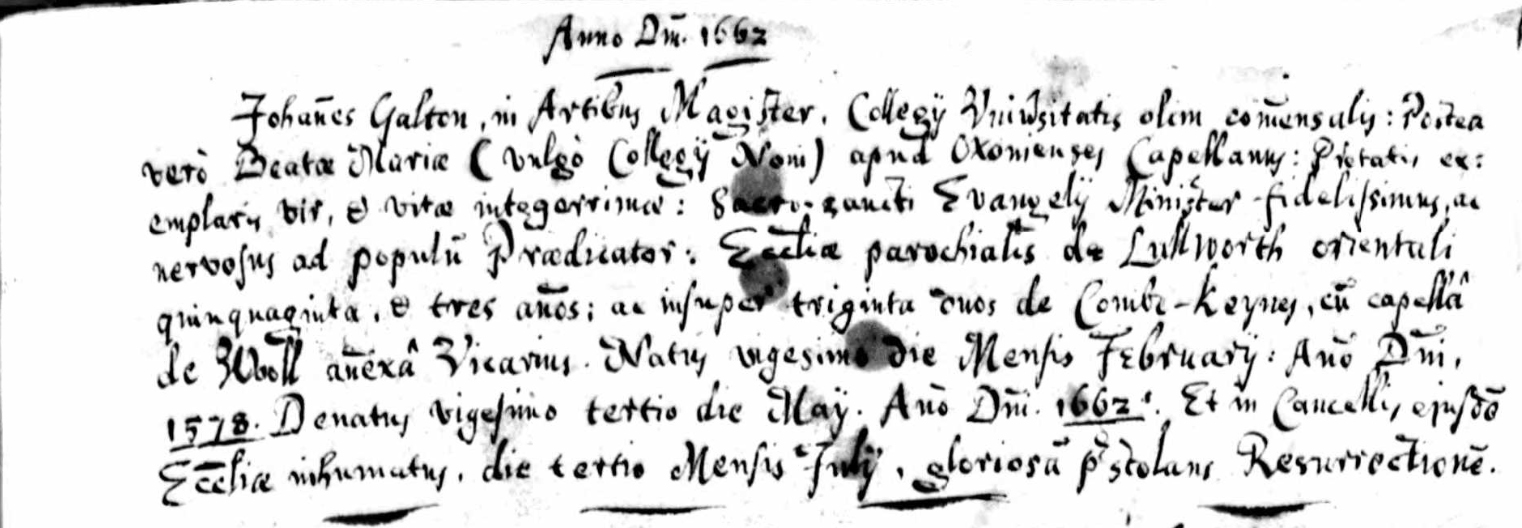 Anno Dm̃. 1662
Johan̄es Galton, in Artibus Magister, Collegij Vniūsitatis olim com̄ensalis: Postea
verò Beatæ Mariæ (vulgò Collegij Novi) apud Oxonienses Capellanus: Pietatis ex:
emplaris vir, & vitæ integerrimæ: Sacro-sancti Evangelij Minister fidelissimus, ac
nervosus ad populū Prædicator: Eccl̄iæ parochialis de Lullworth orientali
quinquaginta, & tres an̄os; ac insuper triginta duos de Combe-Keynes, cū capellâ
de Wooll an̄exâ Vicarius. Natus vigesimo die Mensis February: An̄o Dm̄i,
1578. Denatus vigesimo tertio die Maÿ. An̄o Dm̄i. 1662. Et in Cancellis ejusdē
Eccl̄iæ inhumatus, die tertio Mensis Julij, gloriosā p̄stolans Resurrectionē.